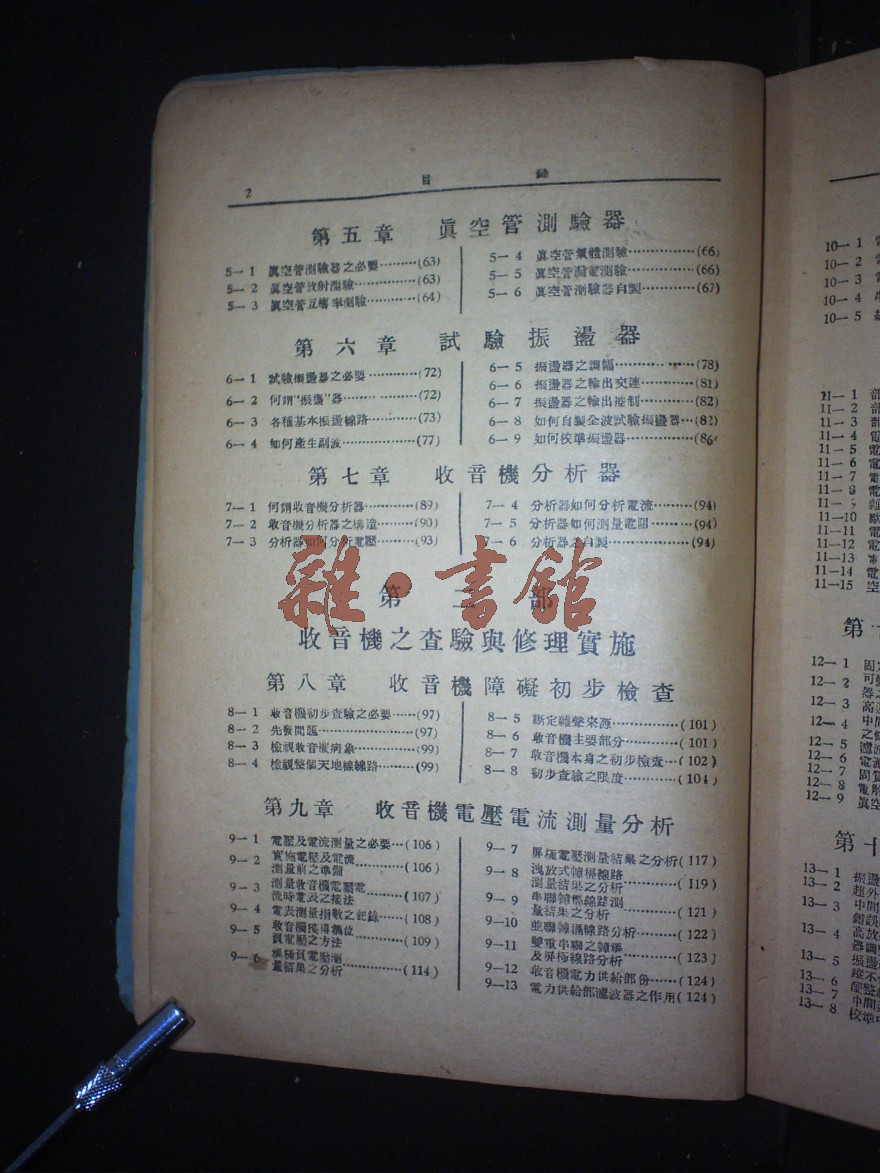 2
目 錄
第五章 眞空管測驗器
5—1 眞空管測驗器之必要………(63)
5—2 眞空管放射測驗…………(63)
5—3 眞空管互導率測驗………(64)
5—4 眞空管氣體測驗……………(66)
5—5 眞空管漏電測驗……………(66)
5—6 眞空管測驗器自製…………(67)
第六章 試驗振盪器
6—1 試驗振盪器之必要…………(72)
6—2 何謂"振盪"器………………(72)
6—3 各種基本振盪線路…………(73)
6—4 如何產生副波………………(77)
6—5 振盪器之調幅………………(78)
6—6 振盪器之輸出交連…………(81)
6—7 振盪器之輸出控制…………(82)
6—8 如何自製全波試驗振盪器…(82)
6—9 如何校準振盪器……………(86)
第七章 收音機分析器
7—1 何謂收音機分析器…………(89)
7—2 收音機分析器之構造………(90)
7—3 分析器如何分析電壓………(93)
7—4 分析器如何分析電流………(94)
7—5 分析器如何測量電阻………(94)
7—6 分析器之自製………………(94)
雜·書館
第二部
收音機之查驗與修理實施
第八章 收音機障礙初步檢查
8—1 收音機初步查驗之必要……(97)
8—2 先發問題……………………(97)
8—3 檢視收音機病象……………(99)
8—4 檢視整個天地線線路………(99)
8—5 斷定雜聲來源……………(101)
8—6 收音機主要部分…………(101)
8—7 收音機本身之初步檢查…(102)
8—8 初步查驗之限度…………(104)
第九章 收音機電壓電流測量分析
9—1 電壓及電流測量之必要…(106)
9—2 實施電壓及電流
測量前之準備……………(106)
9—3 測量收音機電壓電
流時電表之接法…………(107)
9—4 電表測量指數之記錄……(108)
9—5 收音機獲得柵位
負電壓之方法……………(109)
9—6 柵極負電壓測
量結果之分析……………(114)
9—7 屏極電壓測量結果之分析(117)
9—8 洩放式簾極線路
測量結果之分析…………(119)
9—9 串聯簾極線路測
量結果之分析……………(121)
9—10 並聯簾極線路分析………(122)
9—11 雙重串聯之簾極
及屏極線路分析…………(123)
9—12 收音機電力供給部份……(124)
9—13 電力供給部濾波器之作用(124)
10—1
10—2
10—3
10—4
10—5
11—1
11—2
11—3
11—4 電
11—5 電
11—6 電
11—7 電
11—8 電
11—9
11—10
11—11 電
11—12 電
11—13
11—14 電
11—15 空
第十
12—1 固定
12—2 可變
器之
12—3 高週
12—4 中間
之修
12—5 濾波
12—6 電源
12—7 固質
12—8 電解
12—9 眞空
第十
13—1 振盪
13—2 超外
13—3 中間
錯誤
13—4 高放
器調
13—5 振盪
13—6
13—7
13—8 校準